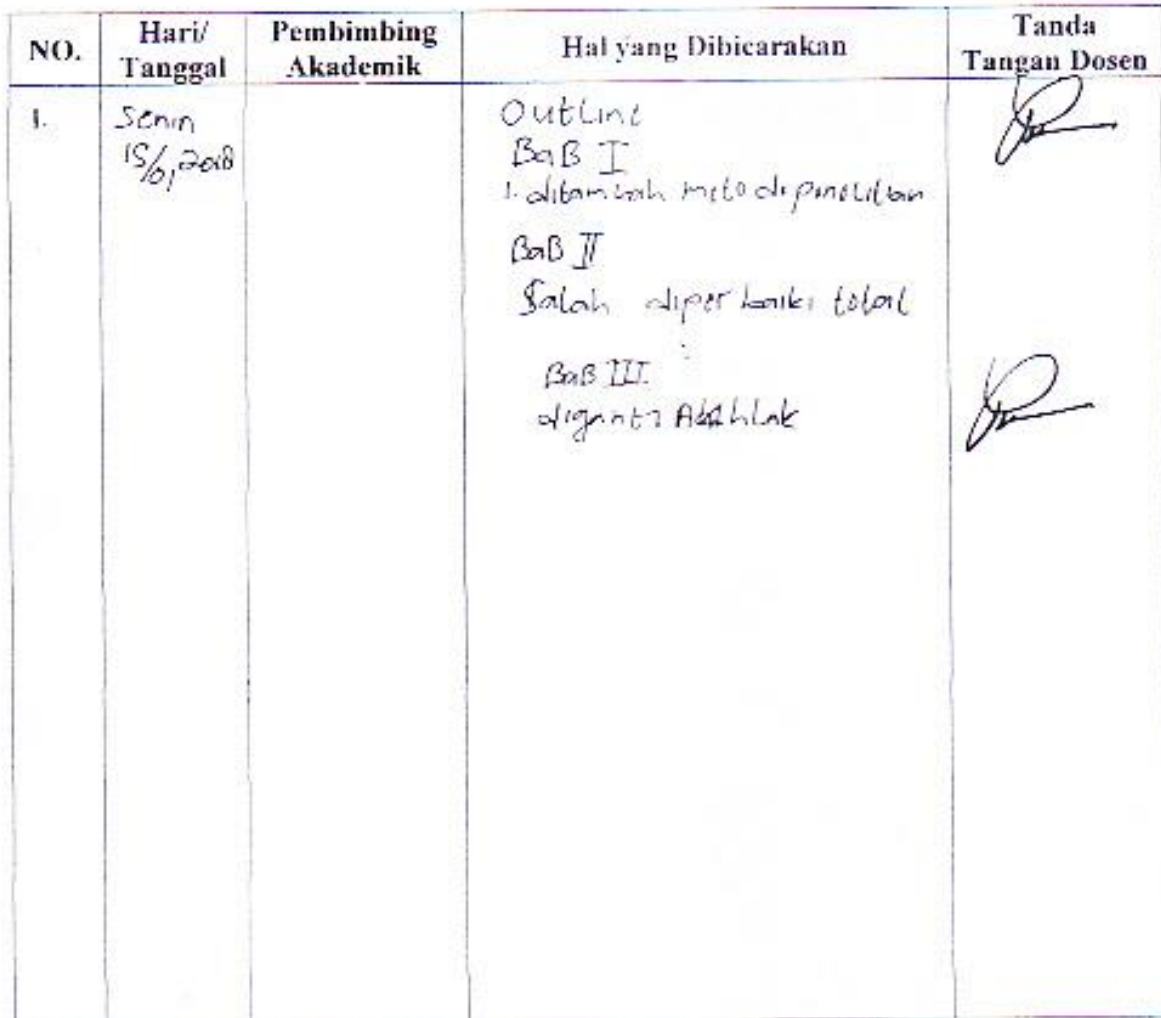 NO.
Hari/
Tanggal
Pembimbing
Akademik
Hal yang Dibicarakan
Tanda
Tangan Dosen
1.
Senin
15/01 2018
Outline
BaB I
1. ditambah metode penelitian
BaB II
Salah diperbaiki total
BaB III
diganti Akhlak